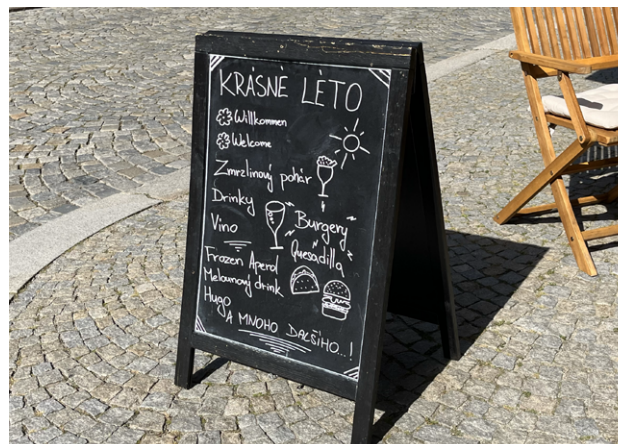 KRÁSNÉ LÉTO
Willkommen
Welcome
Zmrzlinový pohár
Drinky
Vino
Burgery
Quesadilla
Frozen Aperol
Melounový drink
Hugo
A MNOHO DALŠÍHO...!